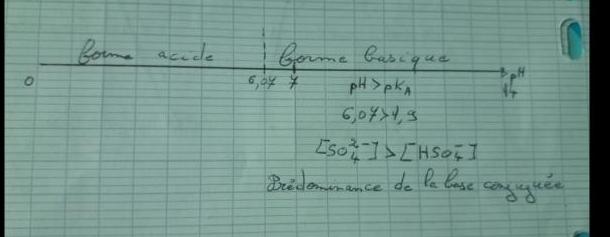 forme acide forme basique
0 6,07 7 pH
pH>pKA 14
6,07>1,9
[SO₄²⁻]>[HSO₄⁻]
Prédominance de la base conjuguée